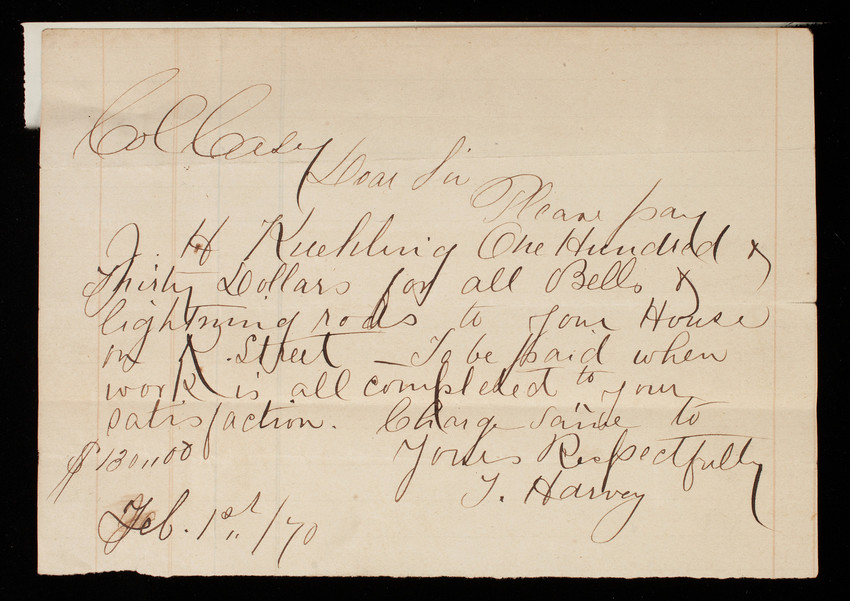 Col Casey
Dear Sir
Please pay
J. H Kuehling One Hundred &
Thirty Dollars for all Bells &
lightning rods to your House
on K. Street – To be paid when
work is all completed to your
satisfaction. Charge same to
$130,,00 Yours Respectfully
T. Harvey
Feb. 1st,,/70